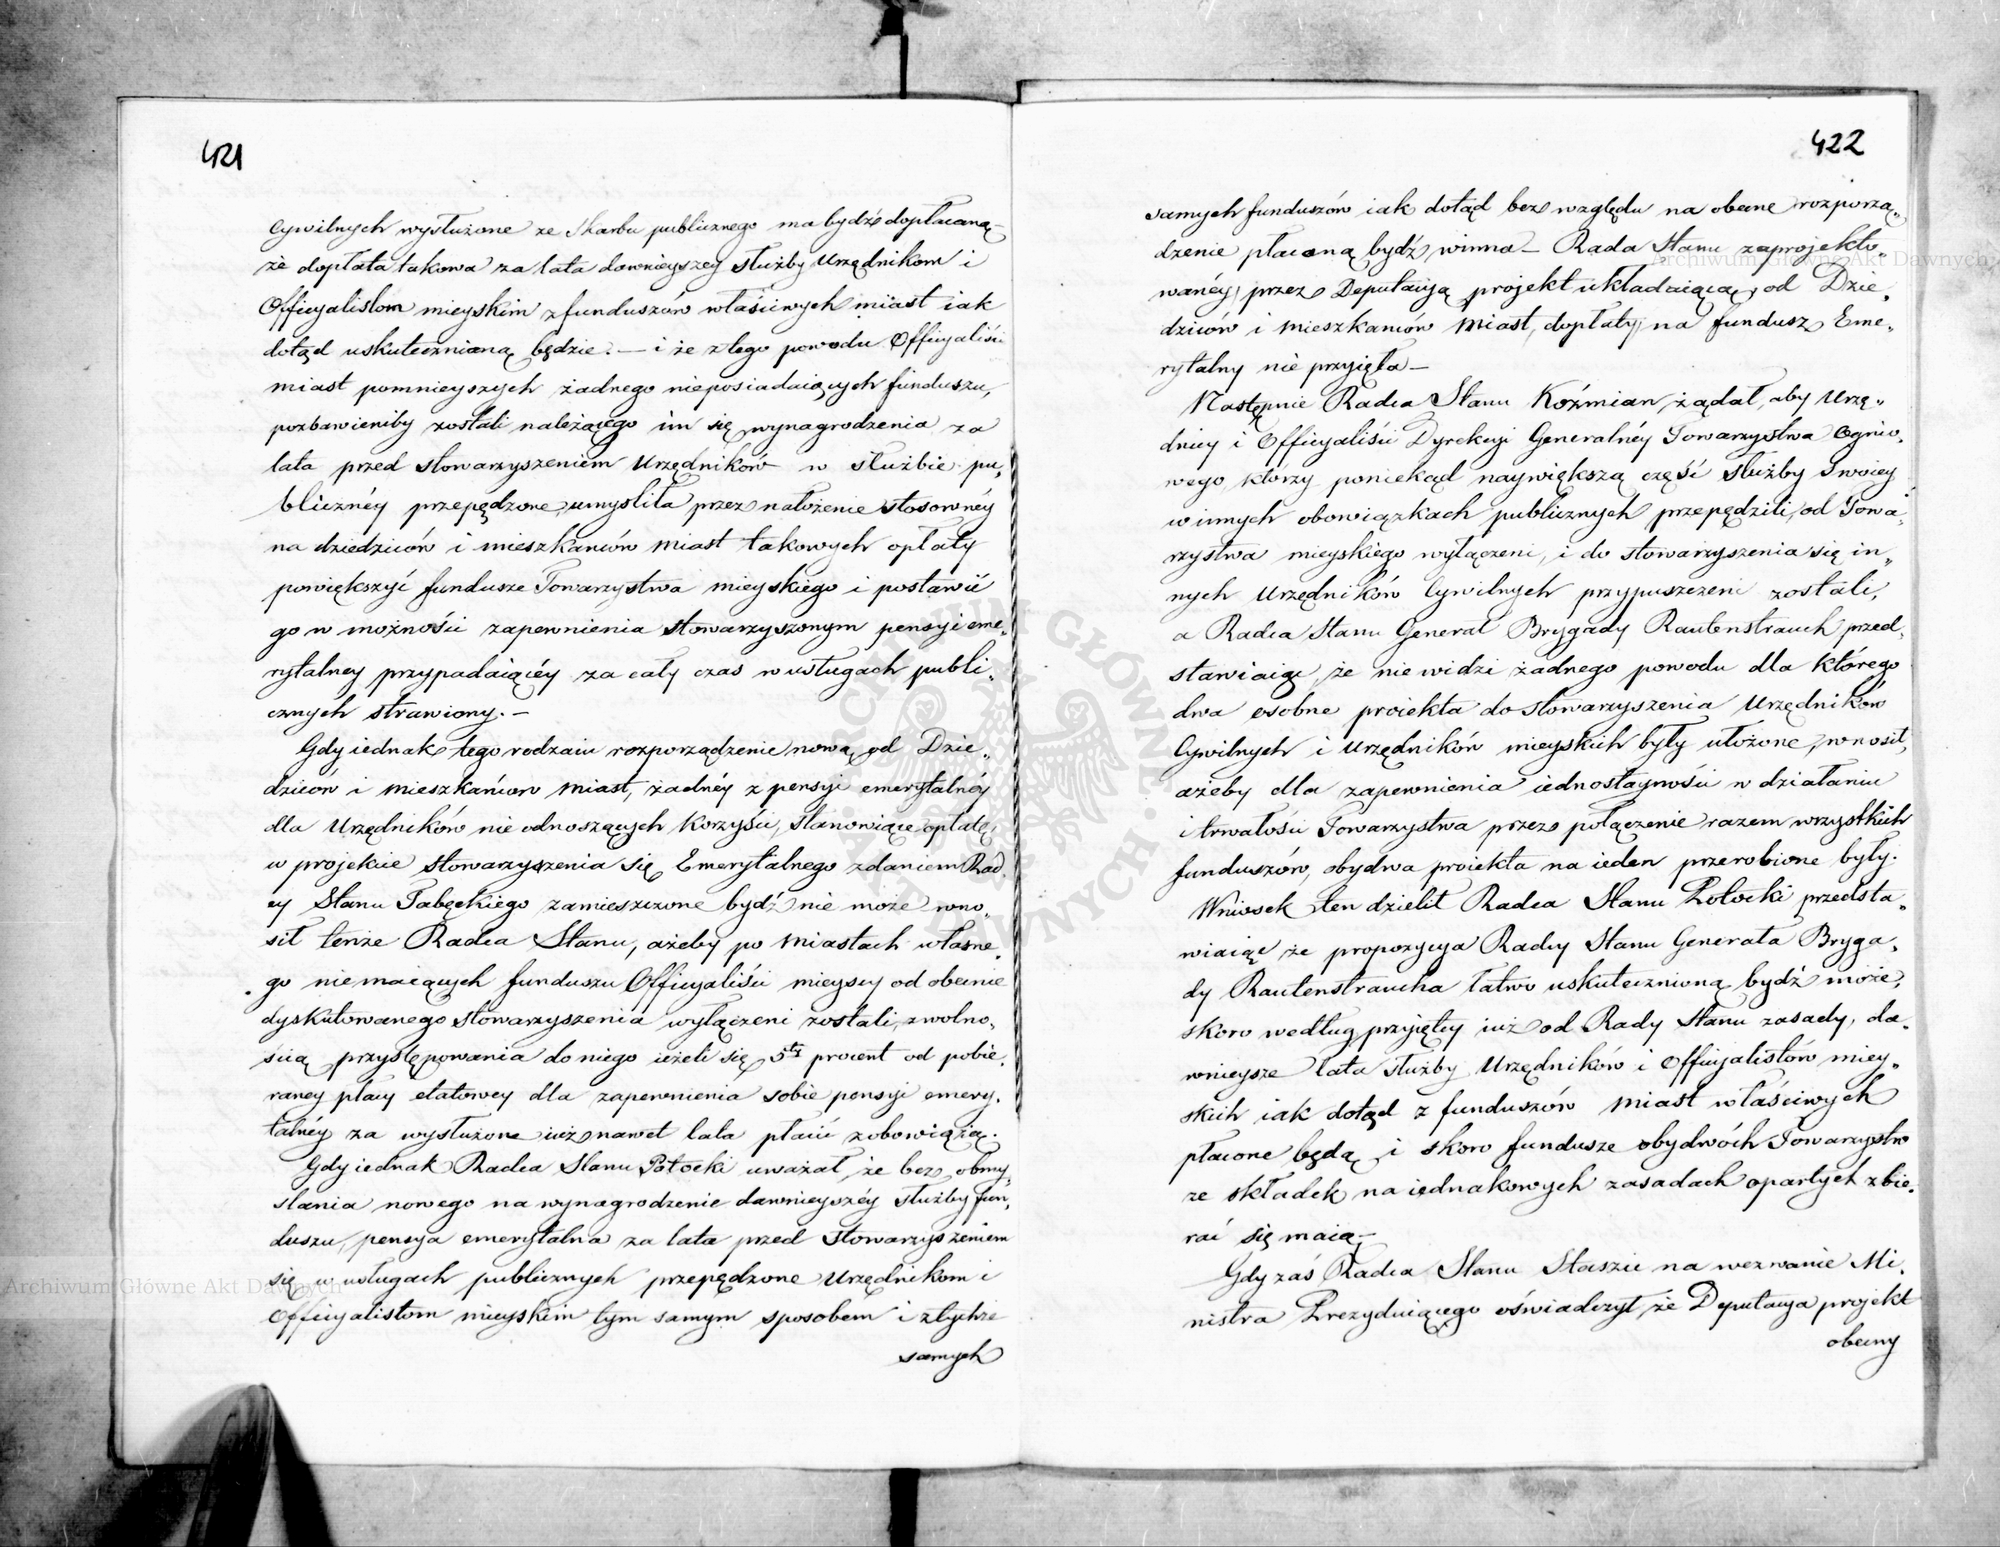 421
Cywilnych wysłużone ze Skarbu publicznego ma bydź dopłacaną
że dopłata takowa za lata dawnieyszey służby Urzędnikom i
Officyalistom mieyskim z funduszów właściwych miast iak
dotąd uskutecznianą będzie. — i że z tego powodu Officyaliści
miast pomnieyszych żadnego nieposiadaiących funduszu,
pozbawieniby zostali należącego im się wynagrodzenia za
lata przed stowarzyszeniem Urzędników w służbie pu„
bliczney przepędzone, umyśliła przez nałożenie stosowney
na dziedziców i mieszkańców miast takowych opłaty
powiększyć fundusze Towarzystwa mieyskiego i postawić
go w możności zapewnienia stowarzyszonym pensyi eme„
rytalney przypadaiącéy za cały czas w usługach publi„
cznych strawiony. —
Gdy iednak tego rodzaiu rozporządzenie nową od Dzie„
dziców i mieszkańców miast, żadnéy z pensyi emerytalnéy
dla Urzędników nie odnoszących korzyści, stanowiące opłatę,
w projekcie stowarzyszenia się Emerytalnego zdaniem Rad„
cy Stanu Tabęckiego zamieszczone bydź nie może wno„
sił tenże Radca Stanu, ażeby po miastach własne„
go niemaiących funduszu Officyaliści mieyscy od obecnie
dyskutowanego stowarzyszenia wyłączeni zostali, z wolno„
ścią przystępowania do niego ieżeli się 5ty procent od pobie„
raney płacy etatowey dla zapewnienia sobie pensyi emery„
talnéy za wysłużone iuż nawet lata płacić zobowiążą.
Gdy iednak Radca Stanu Potocki uważał, że bez obmy„
slania nowego na wynagrodzenie dawnieyszéy służby fun„
duszu, pensya emerytalna za lata przed stowarzyszeniem
się w usługach publicznych przepędzone Urzędnikom i
Officyalistom mieyskim tym samym sposobem i z tychże
samych
422
samych funduszów iak dotąd bez względu na obecne rozporzą„
dzenie płaconą bydź winna — Rada Stanu zaprojekto„
wanéy przez Deputacyą projekt układaiącą, od Dzie„
dziców i mieszkańców miast, dopłaty na fundusz Eme„
rytalny nie przyięła —
Następnie Radca Stanu Koźmian żądał, aby Urzę„
dnicy i Officyaliści Dyrekcyi Generalnéy Towarzystwa Ognio„
wego, którzy poniekąd naywiększą część służby swoiey
w innych obowiązkach publicznych przepędzili, od Towa„
rzystwa mieyskiego wyłączeni, i do stowarzyszenia się in„
nych Urzędników Cywilnych przypuszczeni zostali,
a Radca Stanu Generał Brygady Rautenstrauch przed„
stawiaiąc, że nie widzi żadnego powodu dla którego
dwa osobne proiekta do stowarzyszenia Urzędników
Cywilnych i Urzędników mieyskich były ułożone, wnosił,
ażeby dla zapewnienia iednostayności w działaniu
i trwałości Towarzystwa przez połączenie razem wszystkich
funduszów, obydwa proiekta na ieden przerobione były.
Wniosek ten dzielił Radca Stanu Potocki przedsta„
wiaiąc że propozycya Radcy Stanu Generała Bryga„
dy Rautenstraucha łatwo uskutecznioną bydź może,
skoro według przyiętey iuż od Rady Stanu zasady, da„
wnieysze lata służby Urzędników i Officyalistów miey„
skich iak dotąd z funduszów miast właściwych
płacone będą, i skoro fundusze obydwóch Towarzystw
ze składek na iednakowych zasadach opartych zbie„
rać się maią —
Gdy zaś Radca Stanu Staszic na wezwanie Mi„
nistra Prezyduiącego oświadczył, że Deputacya projekt
obecny
Archiwum Główne Akt Dawnych
Archiwum Główne Akt Dawnych
ARCHIWUM GŁÓWNE AKT DAWNYCH